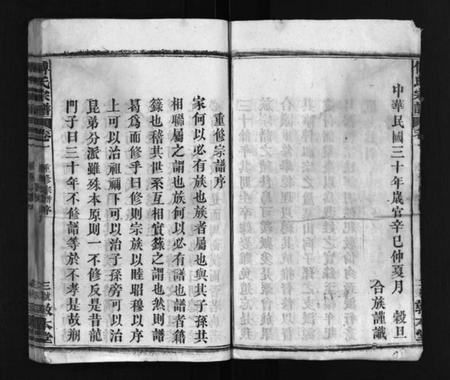 中華民國三十年歲官辛巳仲夏月 穀旦
合族謹識
重修宗譜序
家何以必有族也族者屬也與其子孫共
相聯屬之謂也族何以必有譜也譜者籍
籙也稽其世系互相實錄之謂也然則譜
曷為而修乎曰修則宗族以睦昭穆以序
上可以治祖禰下可以治子孫旁可以治
昆弟分派雖殊本原則一不修反是昔龍
門子曰三十年不修譜等於不孝是故朔
氏宗譜
卷一
重修宗譜序
三
敦本堂